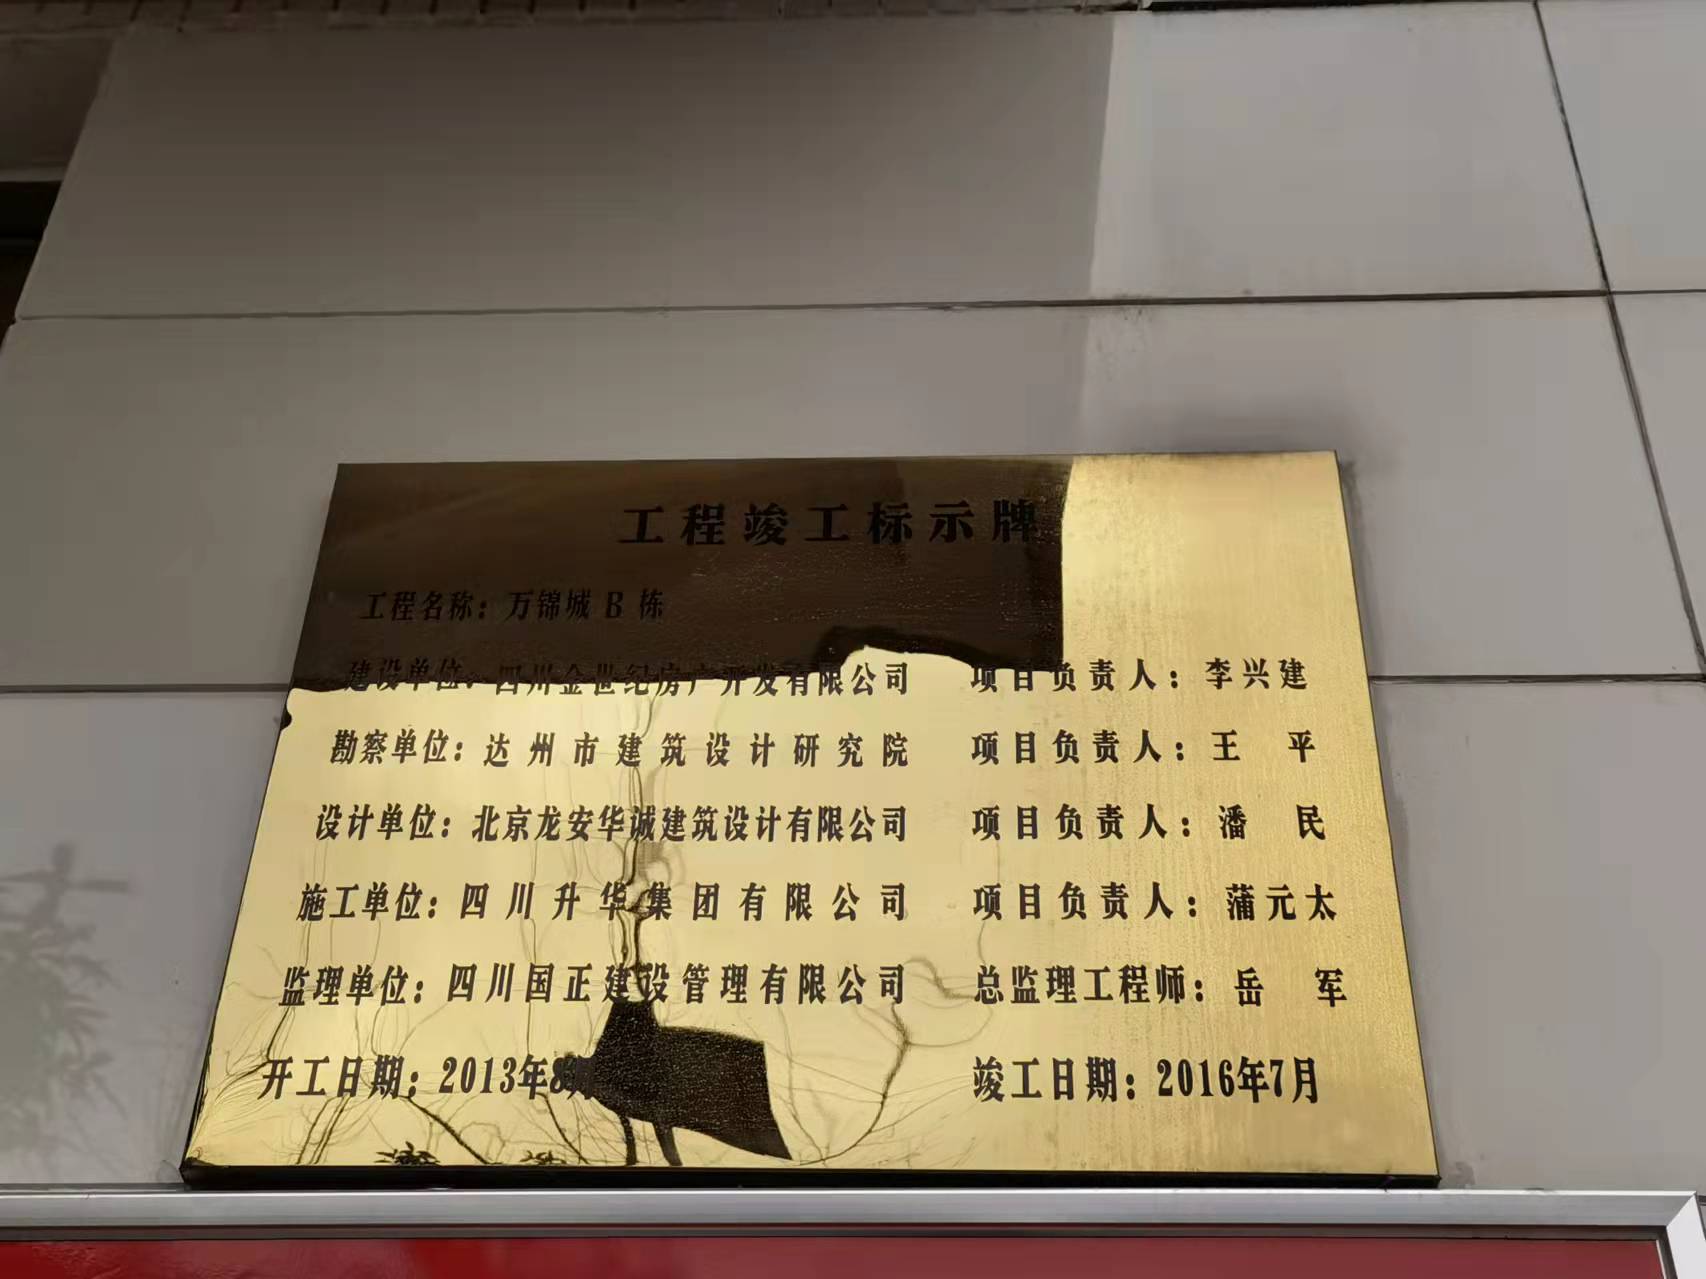 工程竣工标示牌
工程名称：万锦城 B 栋
建设单位：四川金世纪房产开发有限公司 项目负责人：李兴建
勘察单位：达州市建筑设计研究院 项目负责人：王 平
设计单位：北京龙安华诚建筑设计有限公司 项目负责人：潘 民
施工单位：四川升华集团有限公司 项目负责人：蒲元太
监理单位：四川国正建设管理有限公司 总监理工程师：岳 军
开工日期：2013年8月 竣工日期：2016年7月